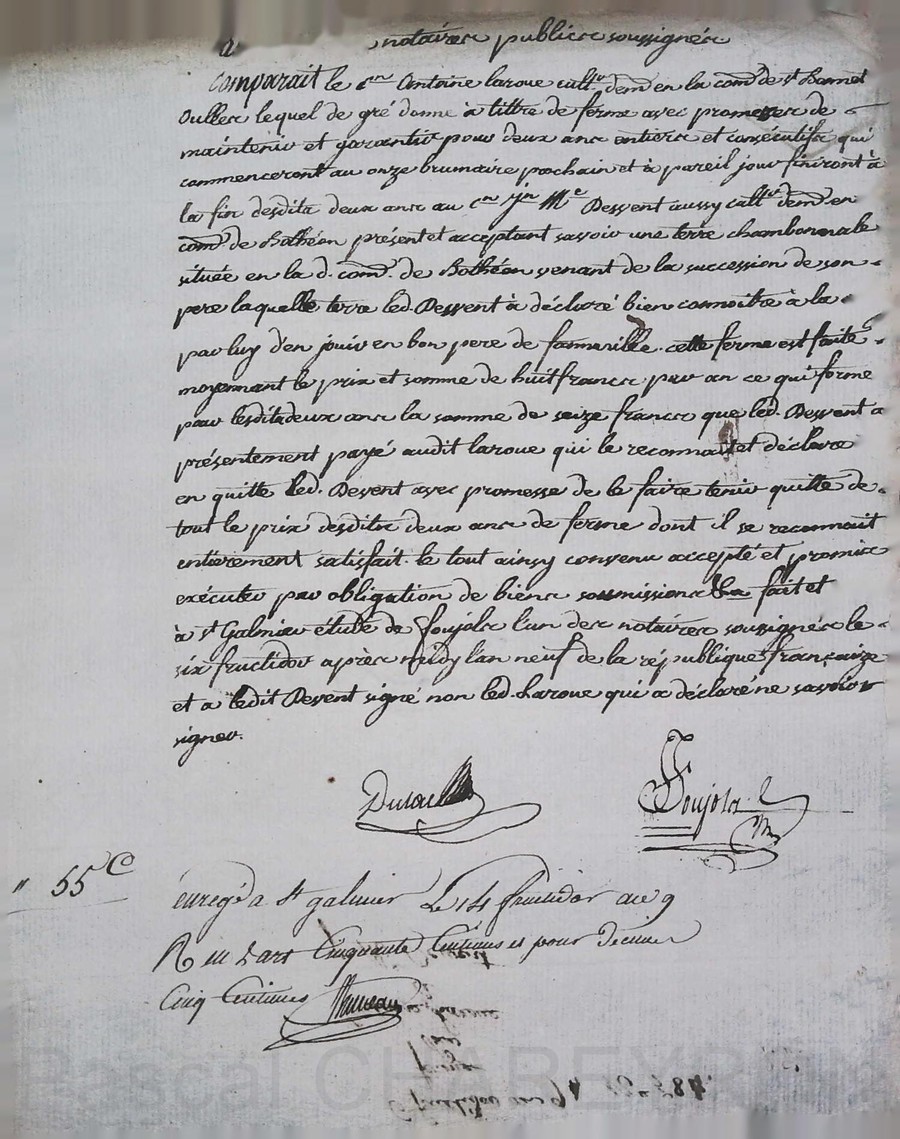 notaires publics soussignés
Comparait le c.en Antoine laroue cult.r dem.t en la com.e de s.t Bonnet
Oulles lequel de gré donne à tittre de ferme avec promesses de
maintenir et garantir pour deux ans entiers et consécutifs qui
commenceront au onze brumaire prochain et à pareil jour finiront à
la fin desdits deux ans au c.en j.n M.e Dessent aussy cult.r dem.t en
com.e de Bothéon présent et acceptant savoir une terre chambonnale
située en la d. com.e de Bothéon venant de la succession de son
pere laquelle terre led. Dessent à déclaré bien connoitre à la
par luy d'en jouir en bon pere de fammille. cette ferme est faite
moyennant le prix et somme de huit francs par an ce qui forme
pour lesdits deux ans la somme de seize francs que led. Dessent a
présentement payé audit laroue qui le reconnait et déclare
en quitte led. Devent avec promesse de le faire tenir quitte de
tout le prix desdits deux ans de ferme dont il se reconnait
entierement satisfait. le tout ainsy convenu accepté et promis
exécuter par obligation de biens soumissions fait et
à s.t Galmier étude de Soujols l'un des notaires soussignés le
six fructidor après midy l'an neuf de la république françaize
et a ledit Devent signé non led. Laroue qui a déclaré ne savoir
signer.
Soujols
" 55 C
enregé a St galmier Le 14 fructidor an 9
Cinquante Centimes et pour Decimes
Cinq Centimes
fructidor an 9
Pascal CHAREYRON